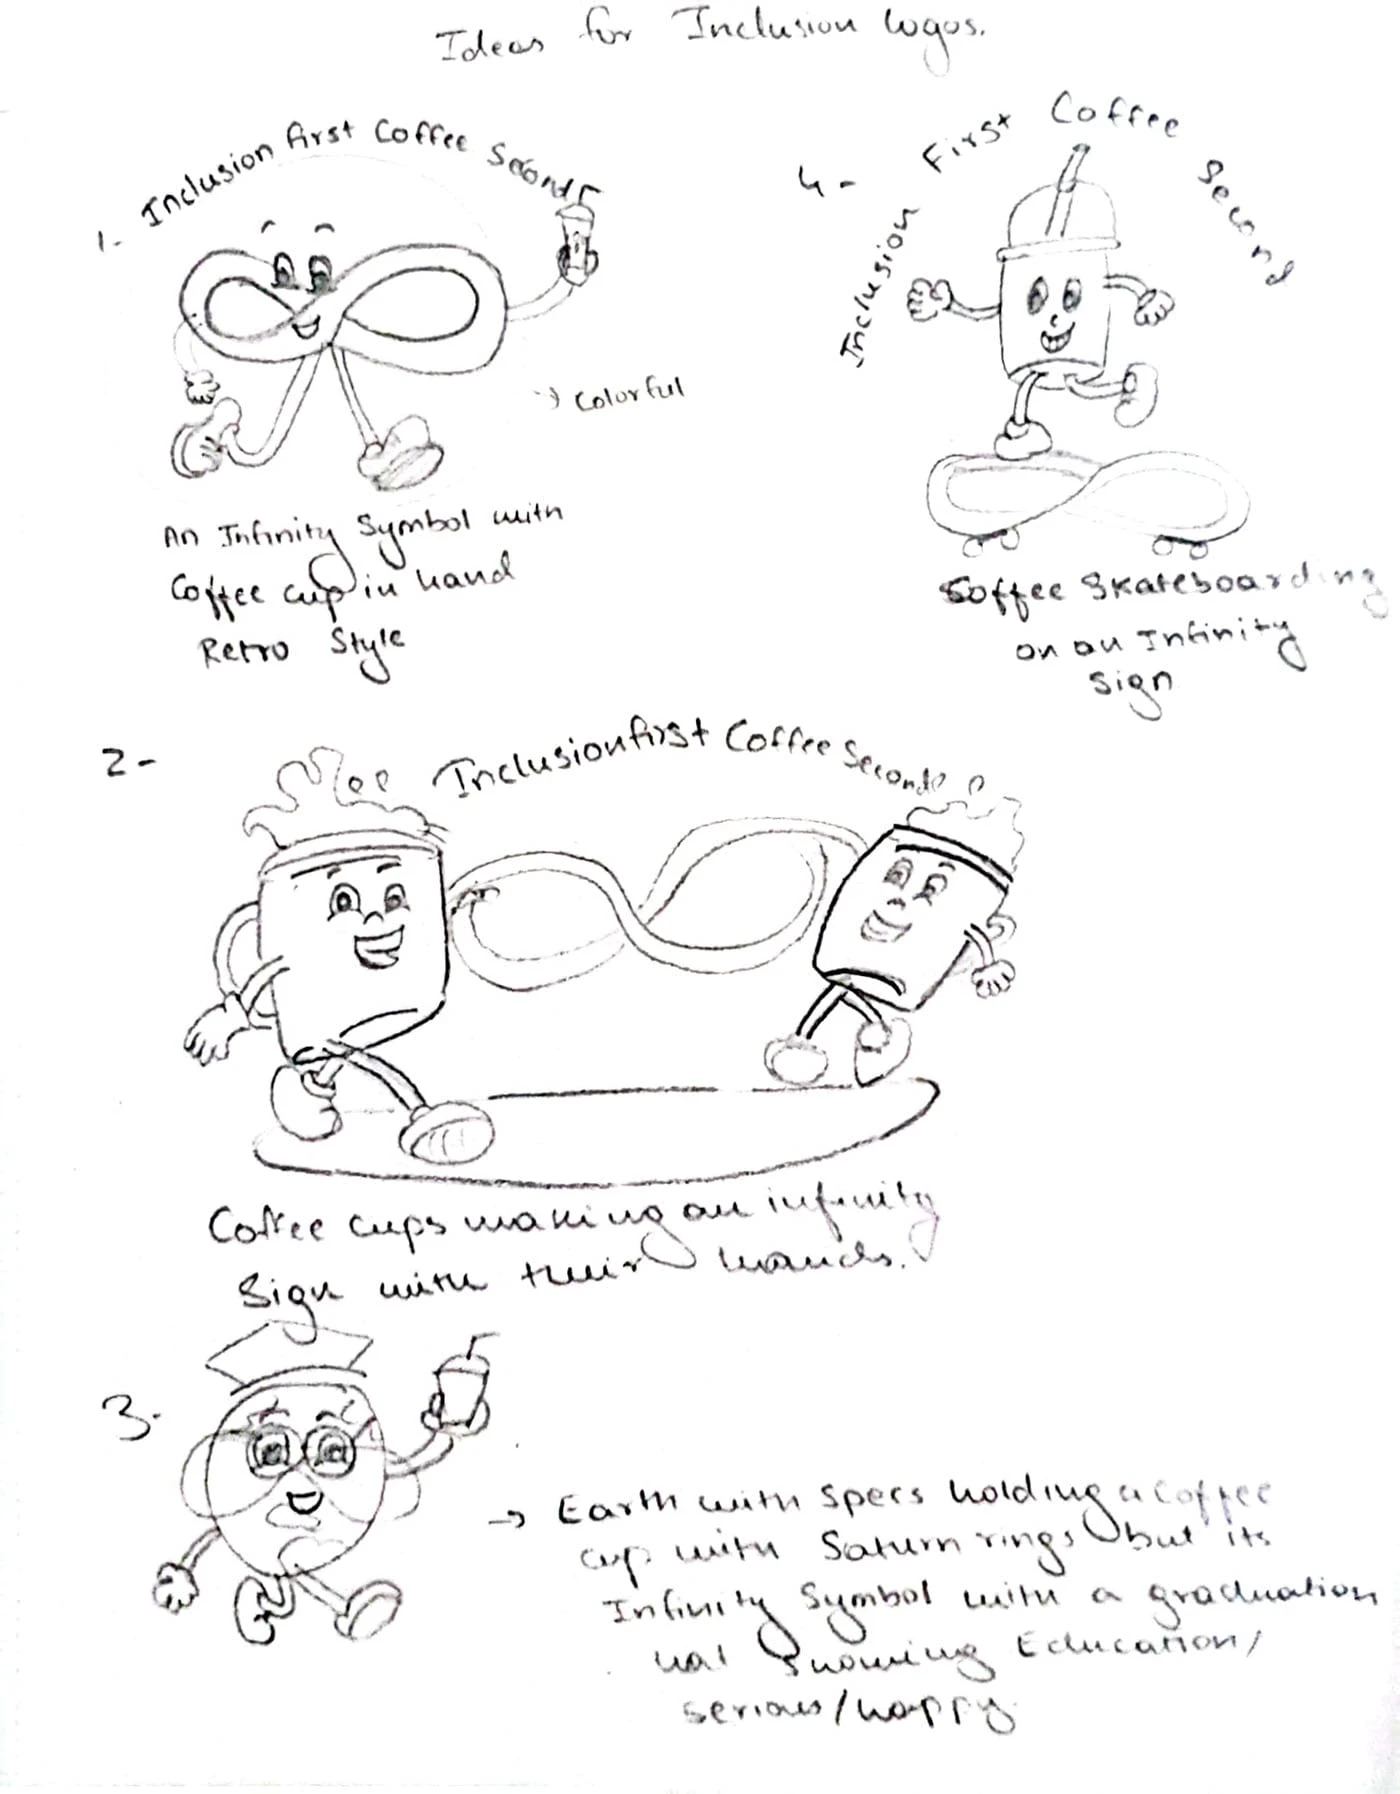 Ideas for Inclusion logos.
1- Inclusion first Coffee Second
→ Colorful
An Infinity Symbol with
Coffee cup in hand
Retro Style
4- Inclusion First Coffee Second
Coffee Skateboarding
on an Infinity
Sign
2- Inclusion first Coffee Second
Coffee cups making an infinity
Sign with their hands.
3-
→ Earth with specs holding a coffee
cup with Saturn rings but its
Infinity Symbol with a graduation
hat Showing Education/
serious/happy